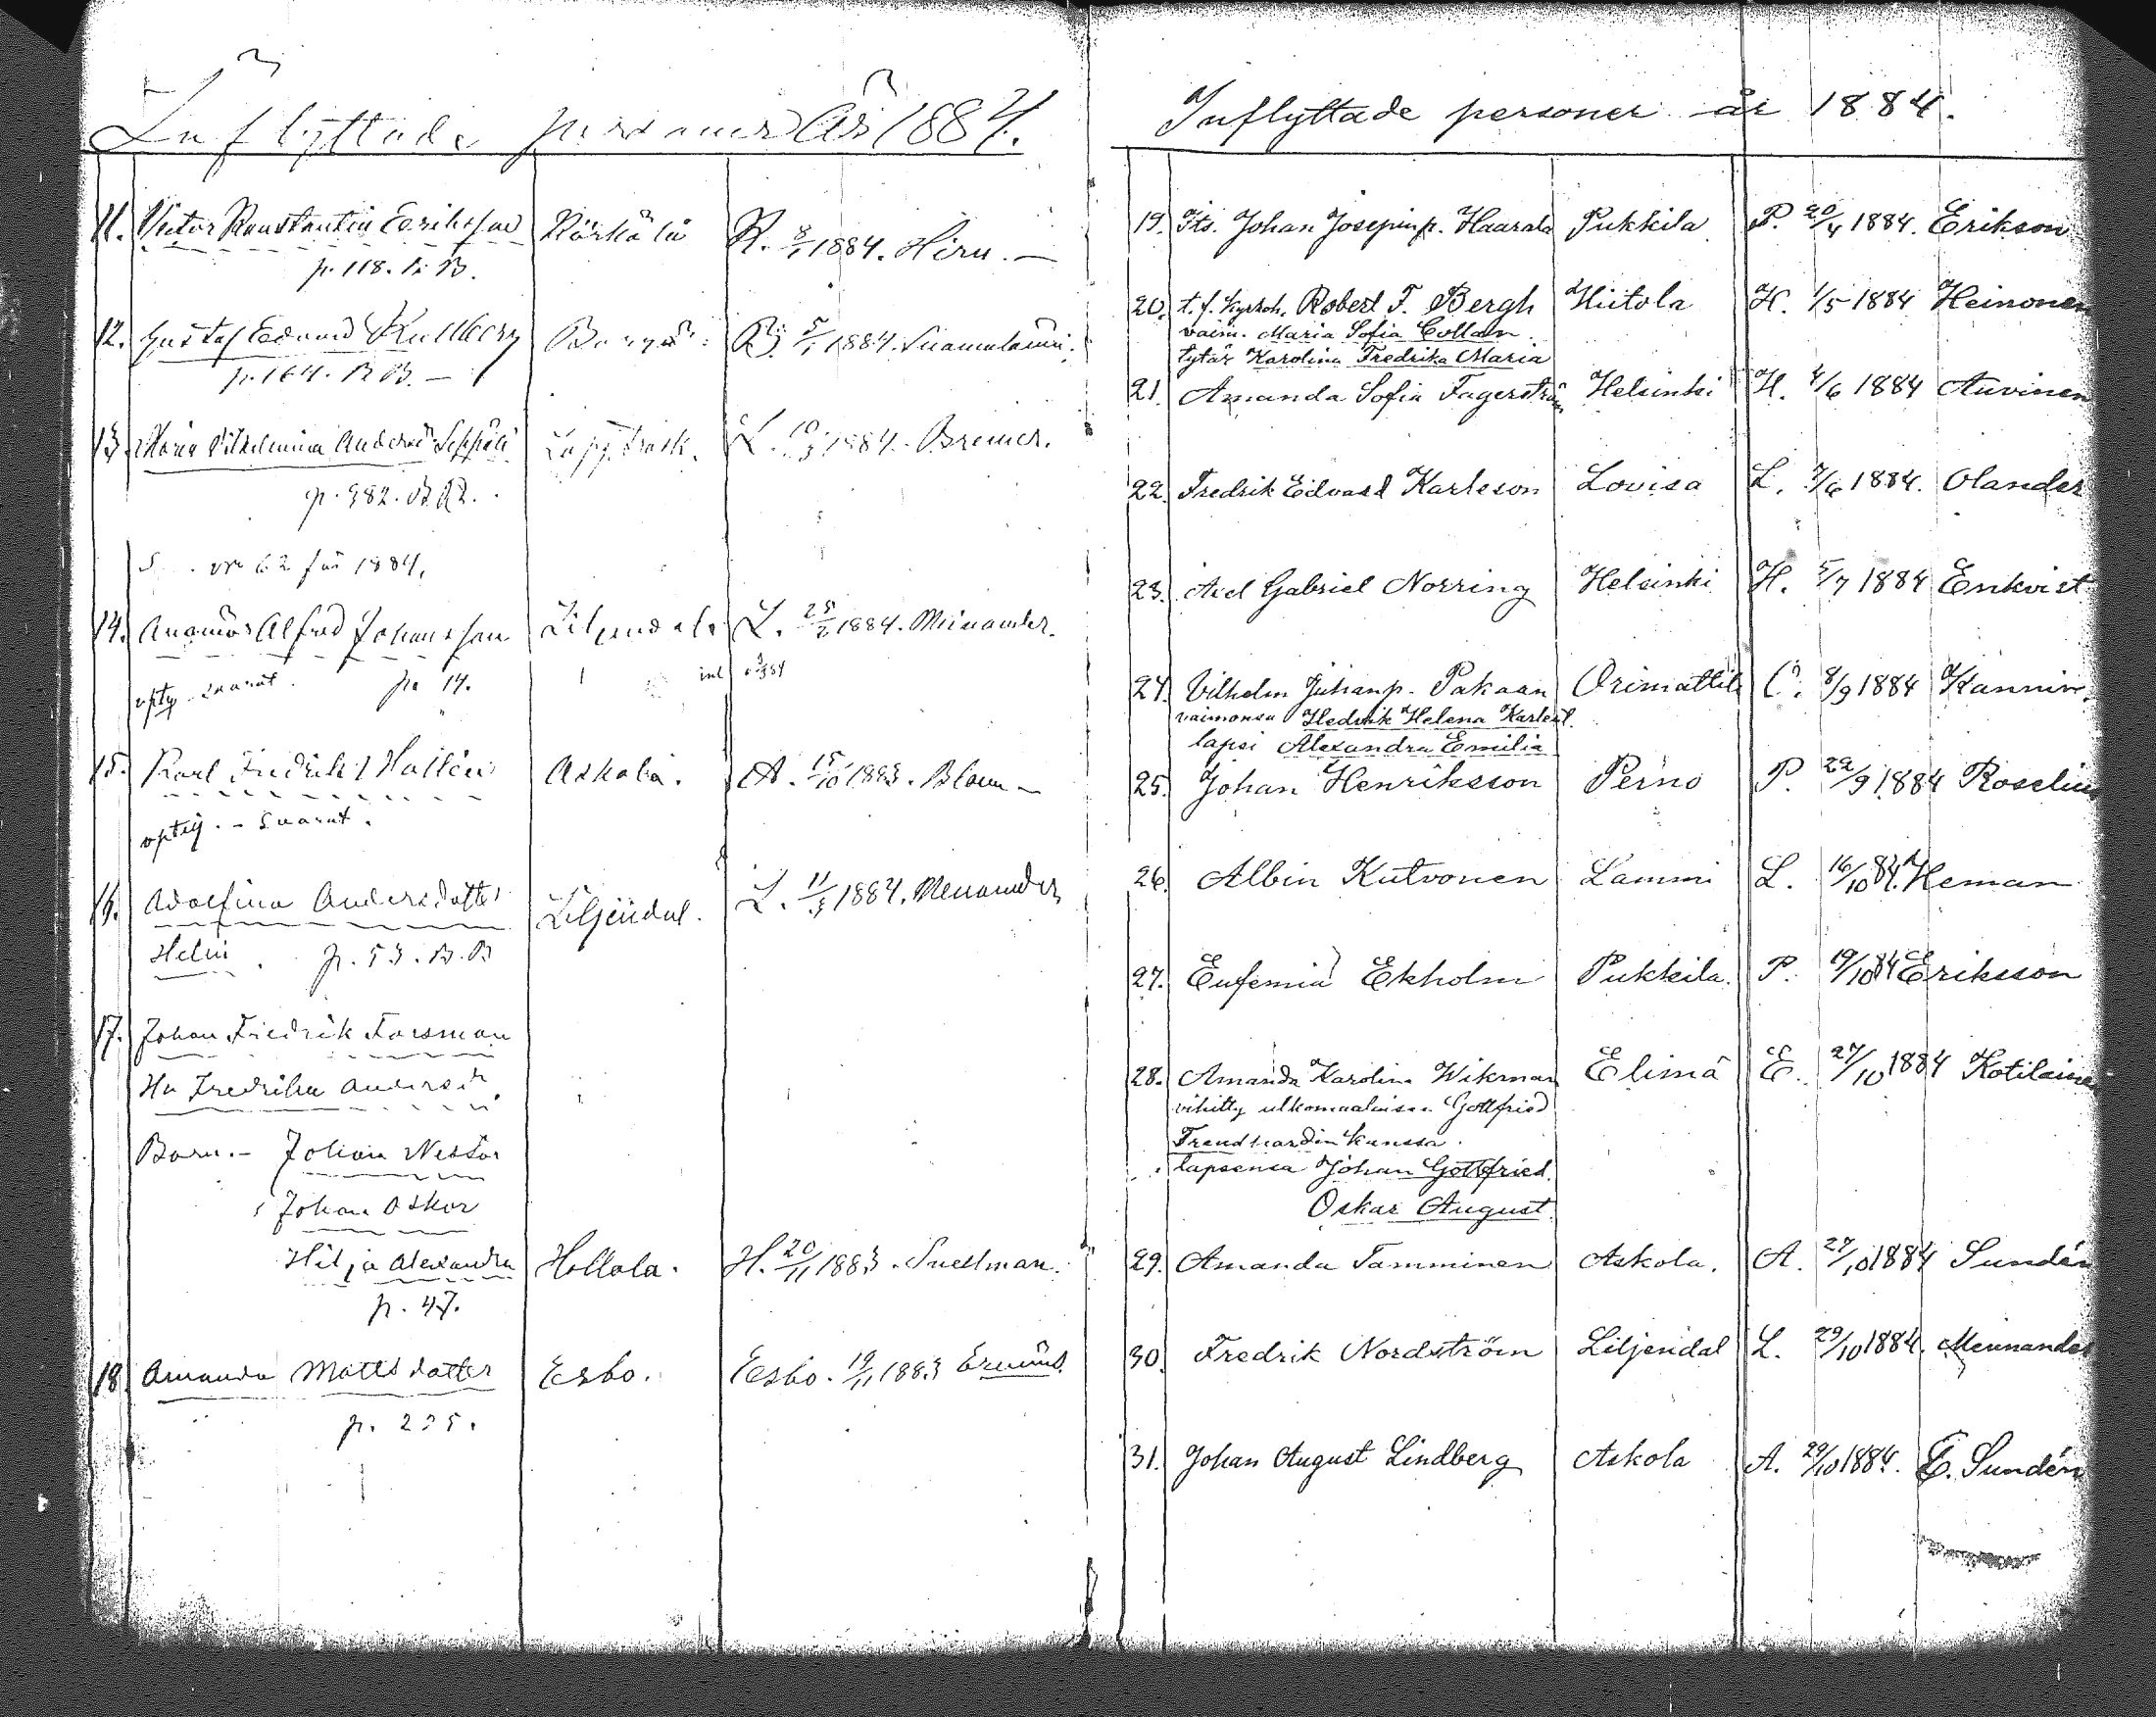 Inflyttade personer år 1884.
11. Victor Konstantin Eeriksson Kärkölä K. 8/1 1884. Hirn. —
p. 118. K. B.
12. Gustaf Edvard Kullberg Borgå. B. 5/1 1884. Suomalainen.
p. 164. B B. —
13. Maria Vilhelmina Andersd. Seppälä Lappträsk. L. 10/3 1884. Bremer.
p. 982.
nr 62 för 1884.
14. Alfred Johansson Liljendal L. 25/2 1884. Menander.
p. 14.
15. Karl Fredrik Hallén Askola. A. 15/10 1883. Blom —
16. Adolfina Andersdotter Liljendal. L. 11/3 1884. Menander
Helin. p. 53. B. B
17. Johan Fredrik Forsman
Hu Fredrika Andersdr.
Barn. – Johan Nestor
Johan Oskar
Hilja Alexandra Hollola. H. 20/11 1883. Snellman.
p. 47.
18. Amanda Mattsdotter Esbo. Esbo. 19/11 1883
p. 235.
Inflyttade personer år 1884.
19. Its. Johan Josepinp. Haarala Pukkila P. 20/4 1884. Erikson
20. t.f. Robert F. Bergh Hiitola H. 1/5 1884 Heinonen
vaim. Maria Sofia Collan
tytär Karolina Fredrika Maria
21. Amanda Sofia Fagerström Helsinki H. 4/6 1884 Auvinen
22. Fredrik Edvard Karlsson Lovisa L. 7/6 1884. Olander
23. Axel Gabriel Norring Helsinki H. 5/7 1884 Enkvist
24. Vilhelm Juhanp. Pakaan Orimattila O. 8/9 1884 Hannin.
vaimonsa Hedvik Helena Karlest.
lapsi Alexandra Emilia
25. Johan Henriksson Perno P. 22/9 1884 Roselius
26. Albin Kutvonen Lammi L. 16/10 84. Heman
27. Eufemia Ekholm Pukkila. P. 19/10 84 Eriksson
28. Amanda Karolina Wikman Elimä E. 27/10 1884 Kotilainen
vihitty ulkomaalaisen Gottfried
kanssa.
lapsensa Johan Gottfried.
Oskar August.
29. Amanda Tamminen Askola. A. 27/10 1884 Sundén
30. Fredrik Nordström Liljendal L. 29/10 1884. Mennander
31. Johan August Lindberg Askola A. 29/10 1884. E. Sundén